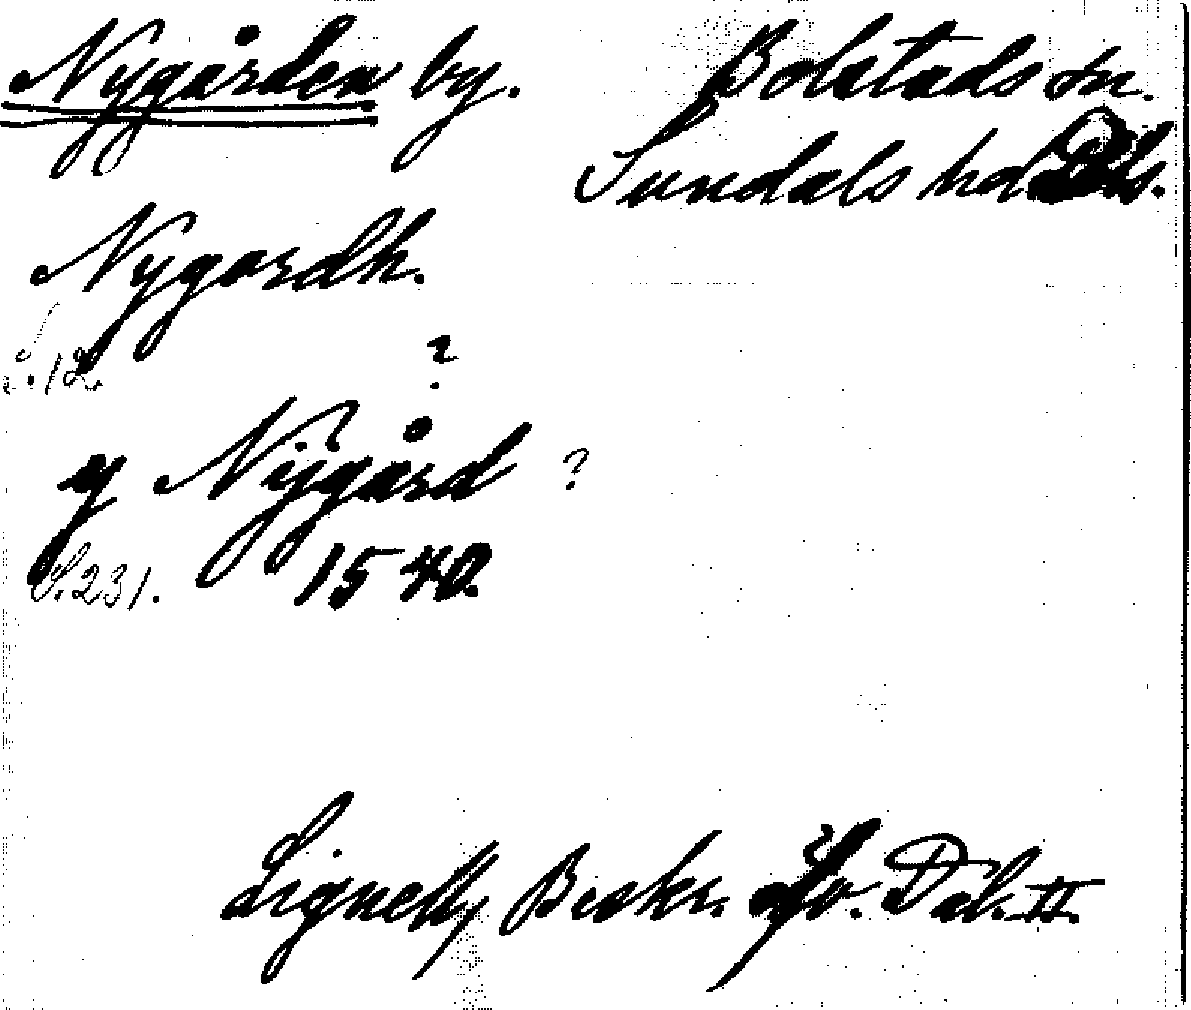 Nygården by. Bolstads sn.
Sundals hd Dls.
Nygordh.
S. 12.
?
y Nÿgård ?
S. 231. 1540.
Lignell, Beskr. Dal. II.